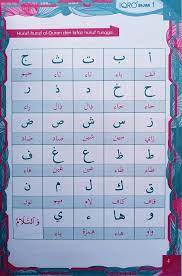 IQRO' 1
Huruf-huruf al-Quran dan lafaz huruf tunggal.
أ ب ت ث ج
الف باء تاء ثاء جيم
ح خ د ذ ر
حاء خاء دال ذال راء
ز س ش ص ض
زاي سين شين صاد ضاد
ط ظ ع غ ف
طاء ظاء عين غين فاء
ق ك ل م ن
قاف كاف لام ميم نون
و ه ء ي
واو هاء همزة ياء
وَالسَّلَامُ
4